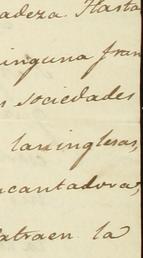 adeza. Hasta
ninguna fran
s sociedades
las inglesas,
ncantadora,
atraen la